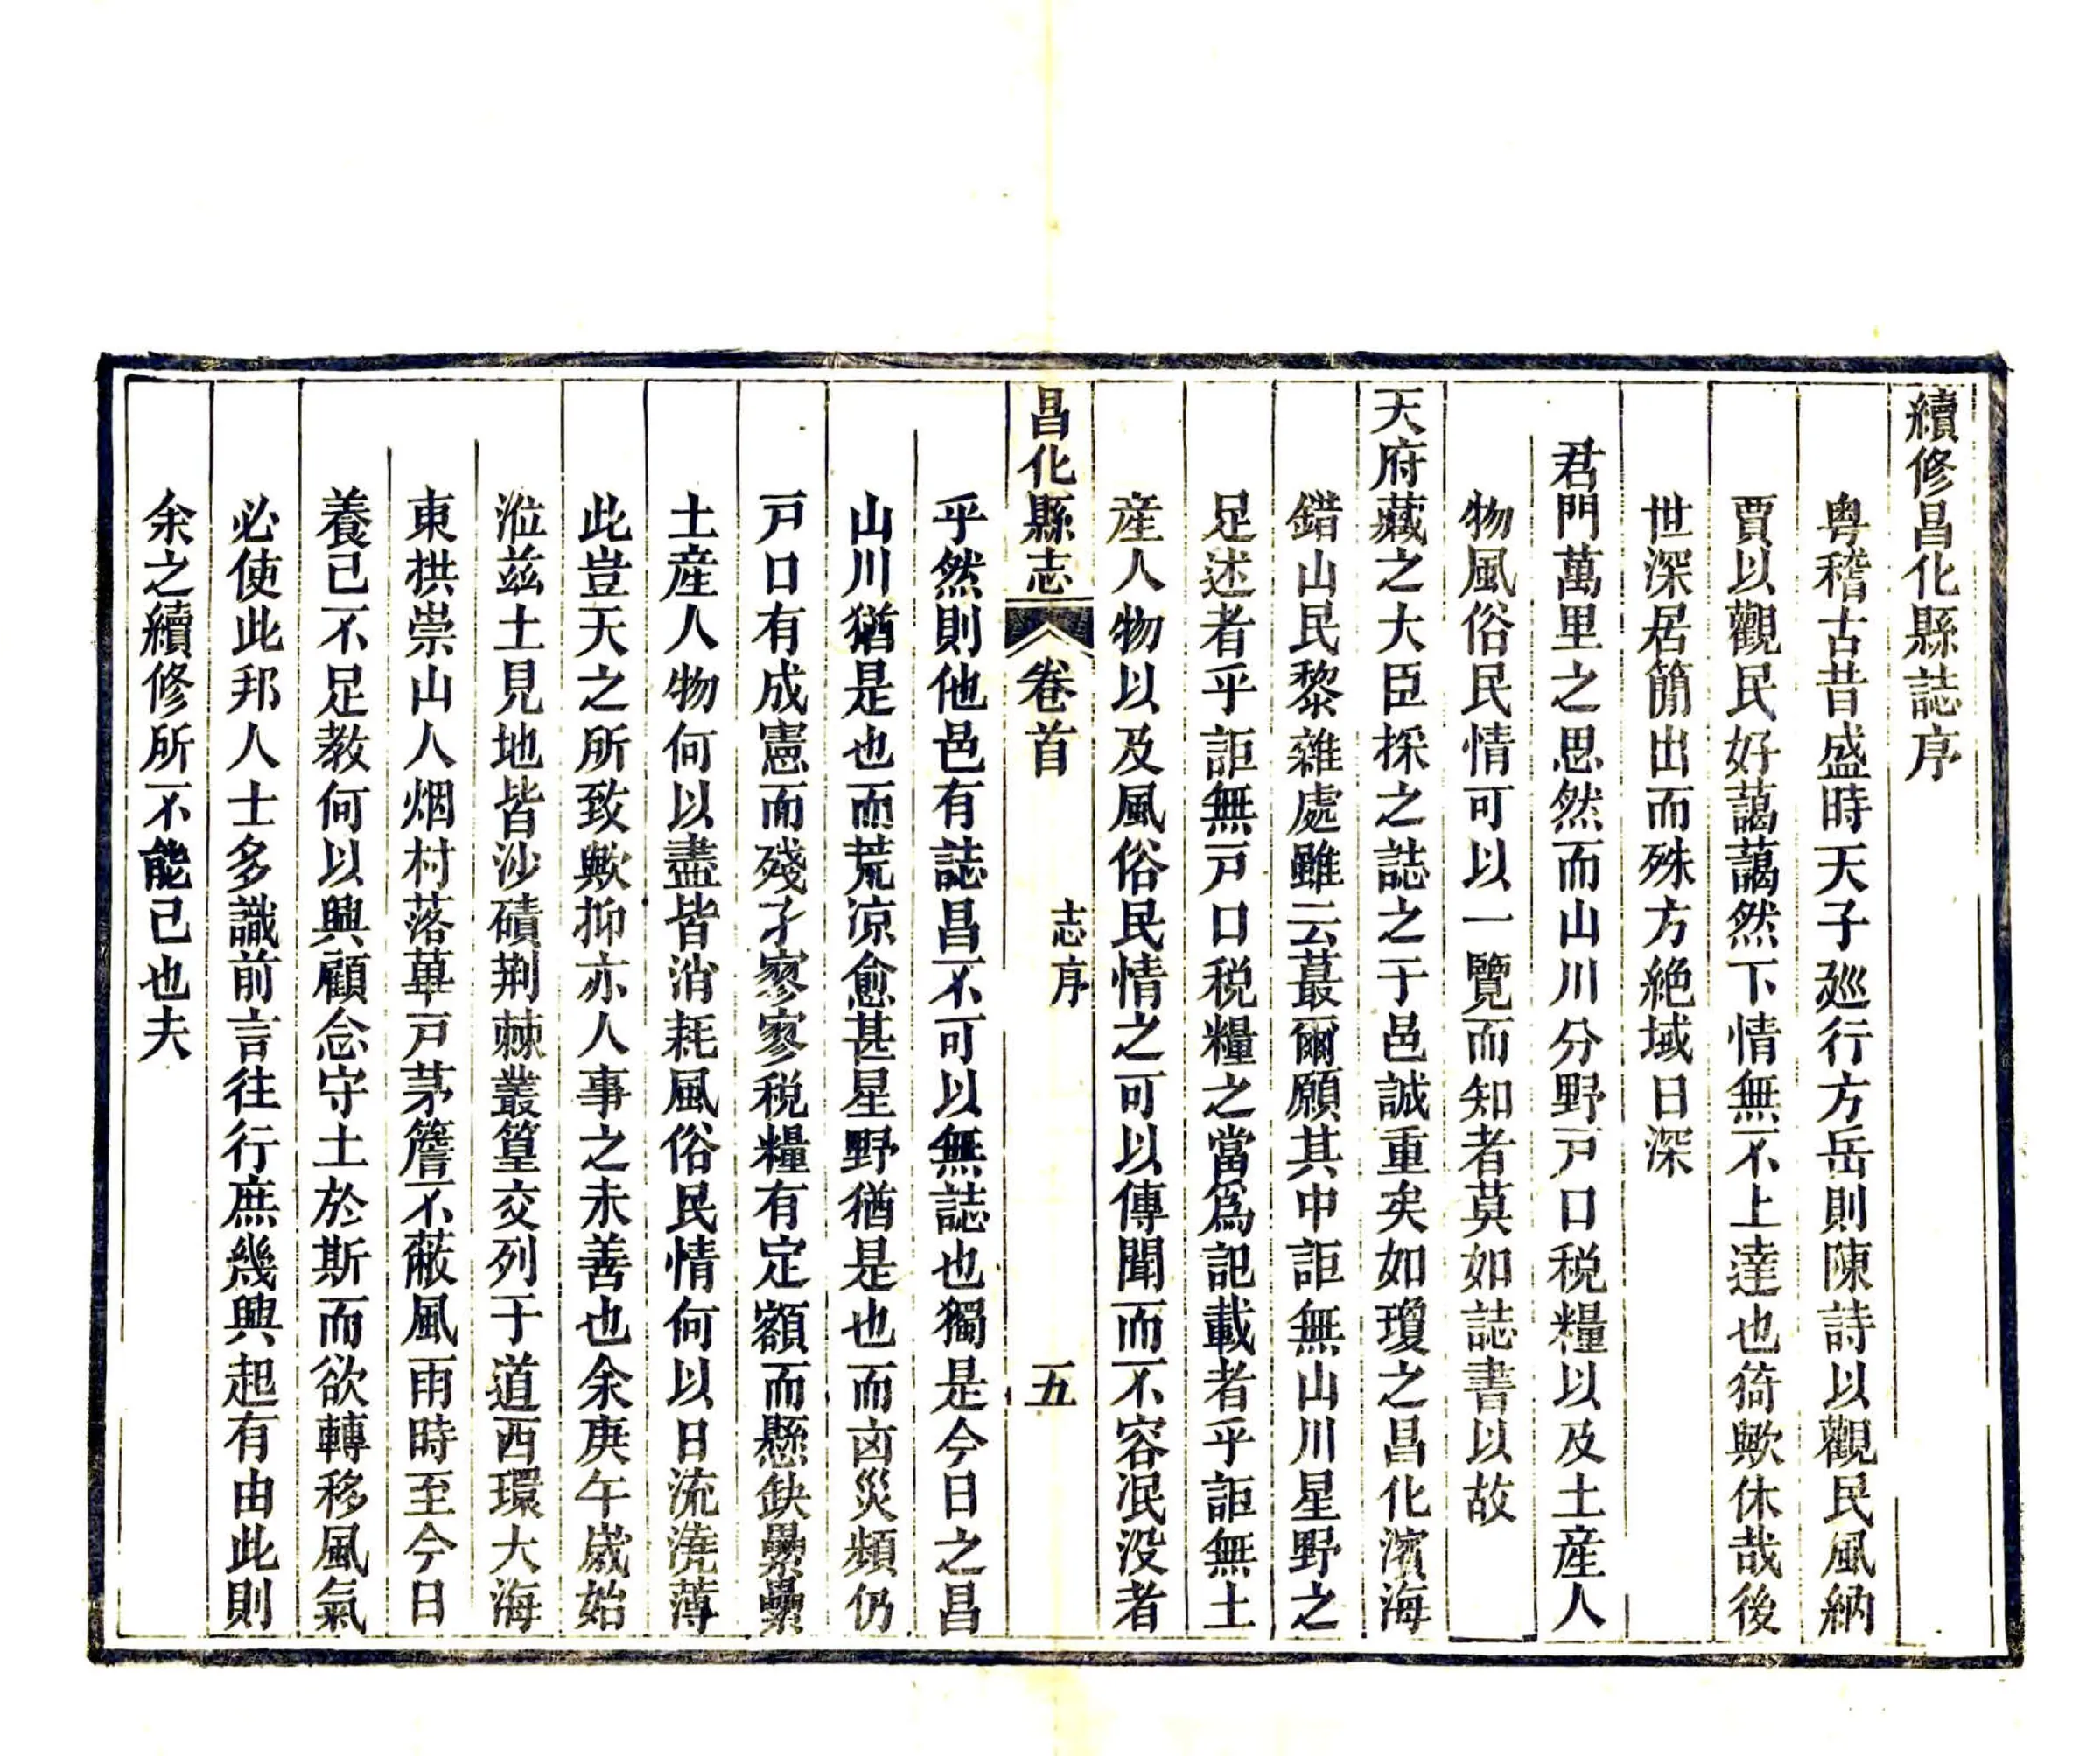 續修昌化縣誌序
粤稽古昔盛時天子廵行方岳則陳詩以觀民風納
賈以觀民好藹藹然下情無不上達也猗歟休哉後
世深居簡出而殊方絶域日深
君門萬里之思然而山川分野戸口税糧以及土産人
物風俗民情可以一覽而知者莫如誌書以故
天府藏之大臣採之誌之于邑誠重矣如瓊之昌化濱海
錯山民黎雜處雖云蕞爾願其中詎無山川星野之
足述者乎詎無戸口税糧之當爲記載者乎詎無土
産人物以及風俗民情之可以傳聞而不容泯没者
昌化縣志 卷首 志序 五
乎然則他邑有誌昌不可以無誌也獨是今日之昌
山川猶是也而荒凉愈甚星野猶是也而凶災頻仍
戸口有成憲而殘孑寥寥税糧有定額而懸缺纍纍
土産人物何以盡皆消耗風俗民情何以日流澆薄
此豈天之所致歟抑亦人事之未善也余庚午歲始
涖兹土見地皆沙磧荆棘叢篁交列于道西環大海
東拱崇山人烟村落蓽戸茅簷不蔽風雨時至今日
養已不足教何以興顧念守土於斯而欲轉移風氣
必使此邦人士多識前言往行庶幾興起有由此則
余之續修所不能已也夫